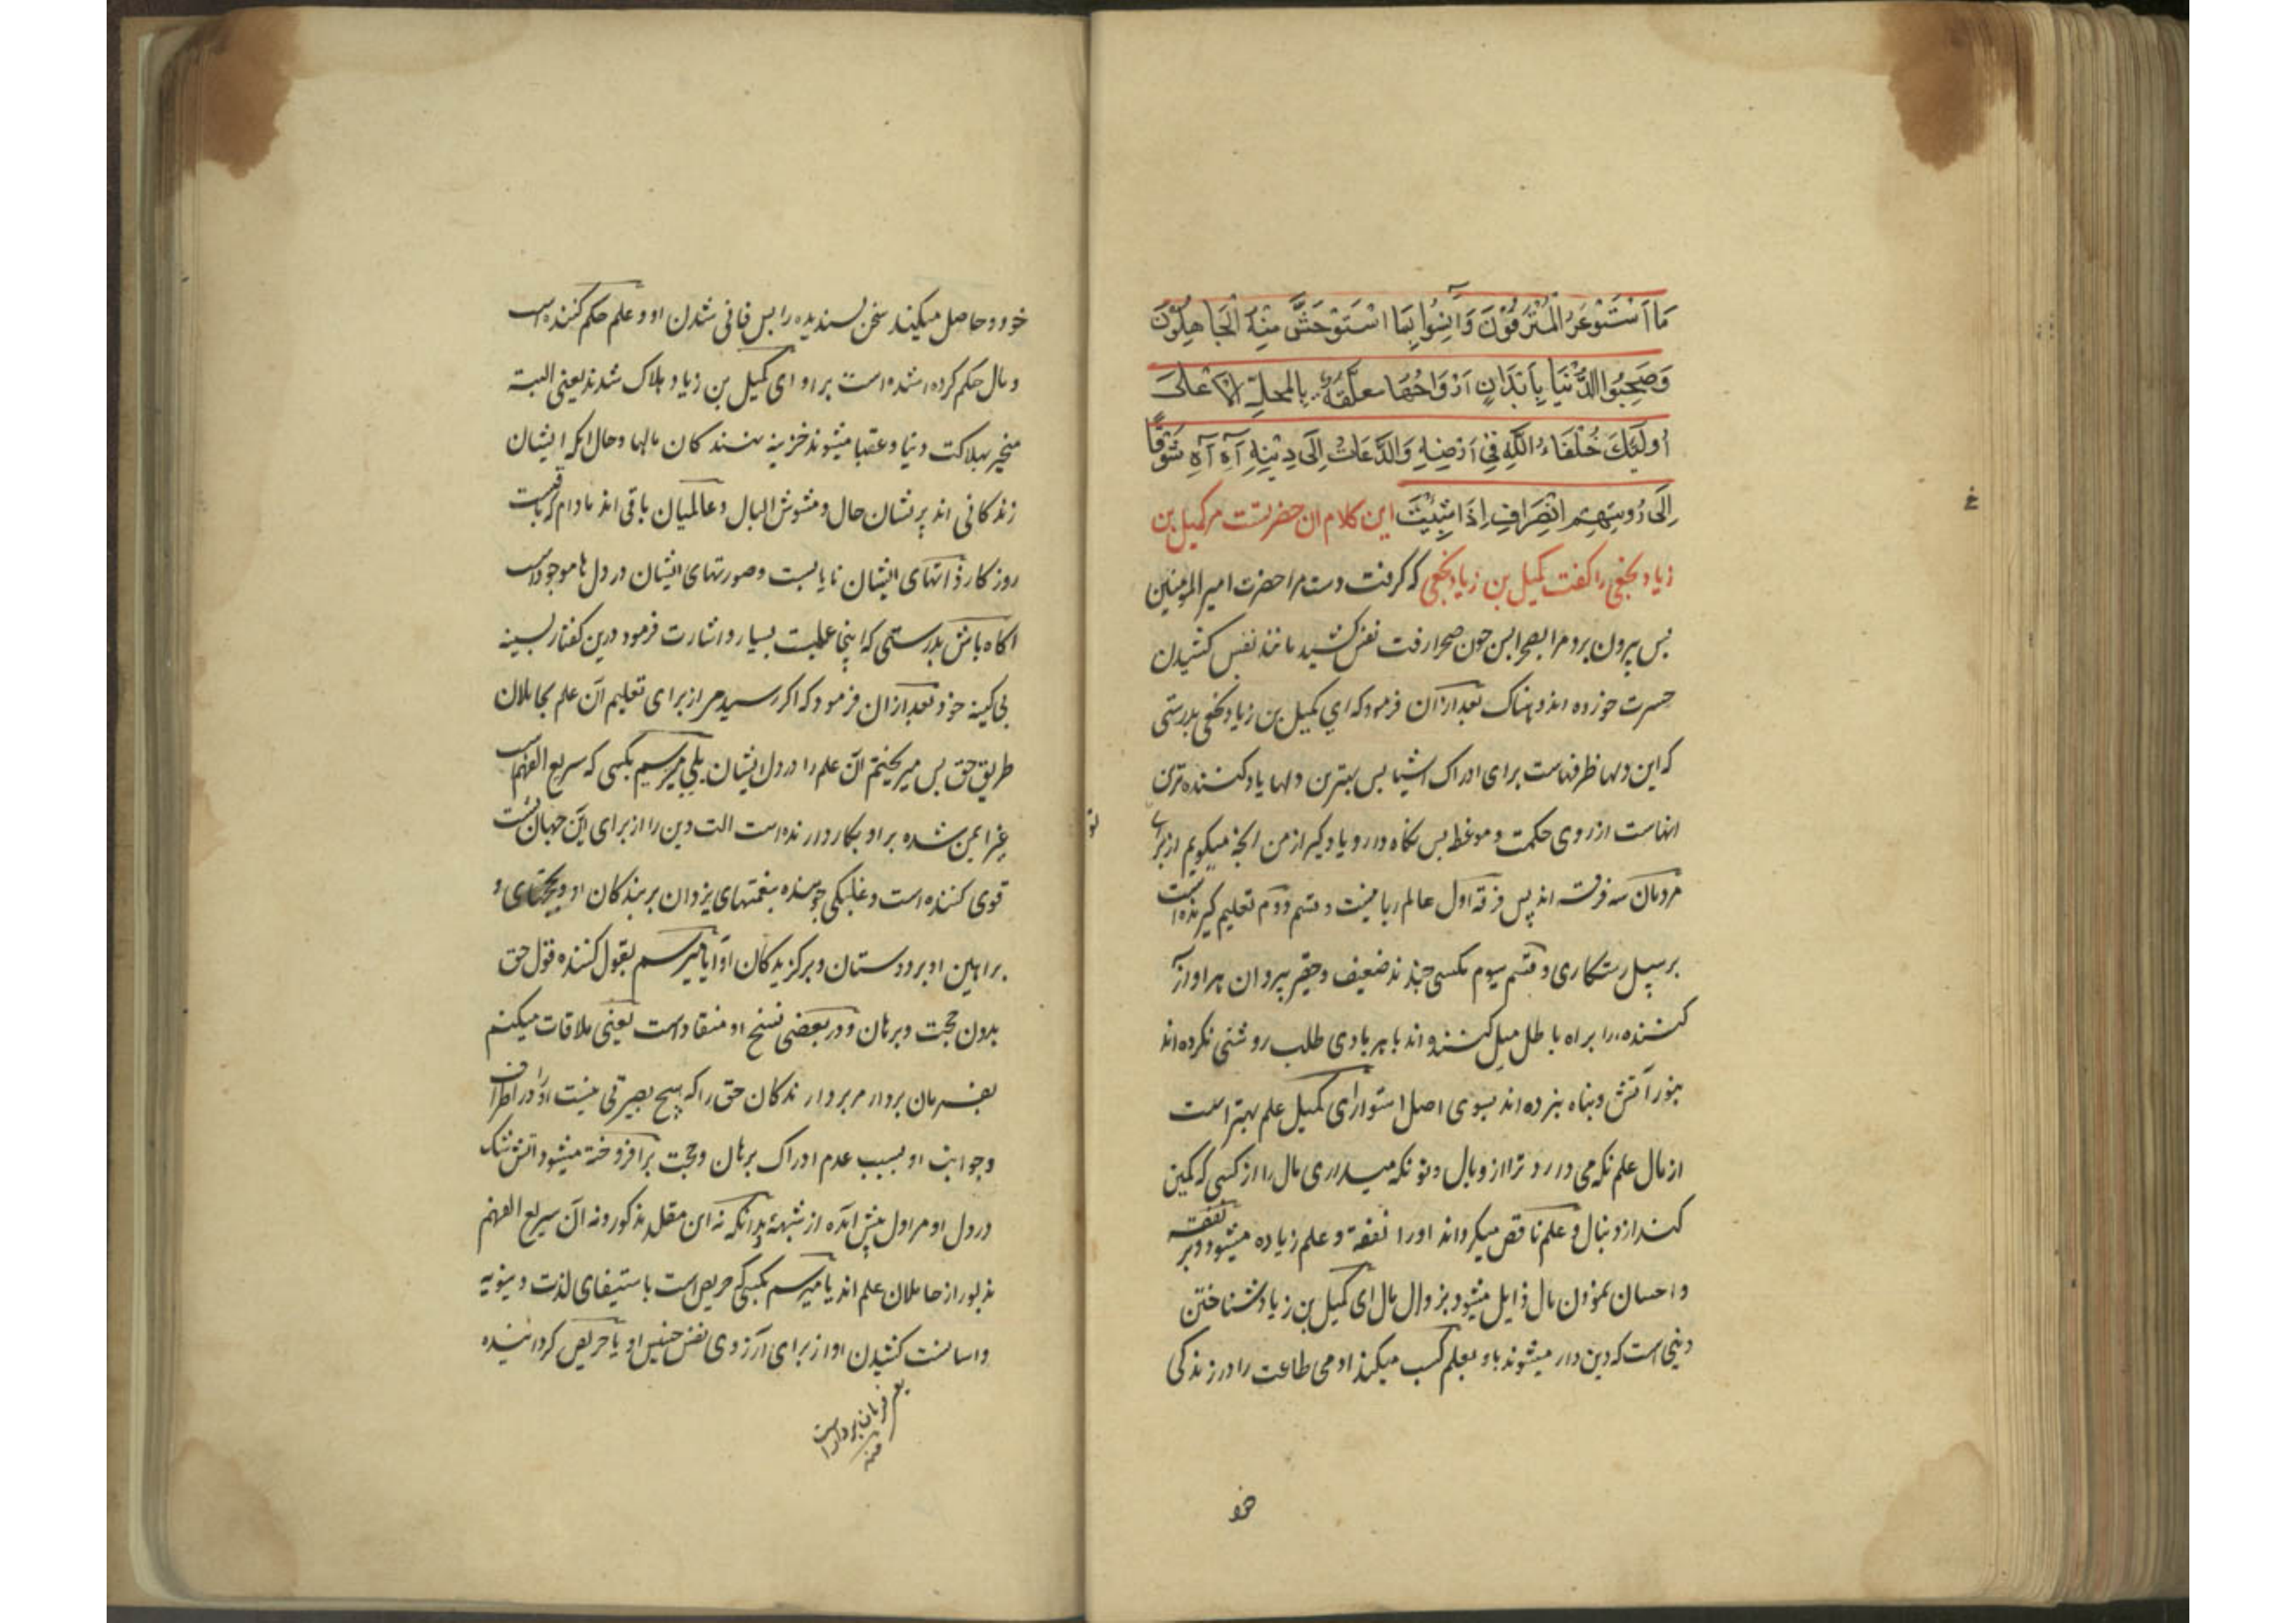 مَا اسْتَوْعَرَ الْمُتْرَفُوْنَ وَآنِسُوا بِمَا اسْتَوْحَشَ مِنْهُ الْجَاهِلُوْنَ
وَصَحِبُوا الدُّنْيَا بِاَبْدَانٍ اَرْوَاحُهَا مُعَلَّقَةٌ بِالْمَحَلِّ الْاَعْلىَ
اُولٰئِكَ خُلَفَاءُ اللّٰهِ فِي اَرْضِهِ وَالدُّعَاتُ اِلَى دِيْنِهِ آهِ آهِ شَوْقًا
اِلَى رُوْيَتِهِم اِنْصَرِافْ اِذَا شِئْتَ این کلام ان حضرتست مر کمیل بن
زیاد نخعی را گفت کمیل بن زیاد نخعی که گرفت دست مرا حضرت امیر المؤمنین
پس بیرون برد مرا بصحرا پس چون صحرا رفت نفس کشید مانند نفس کشیدن
حسرت خورده اندوهناک بعد ازان فرمود که ای کمیل بن زیاد نخعی بدرستی
که این دلها ظرفهاست برای ادراک اشیا پس بهترین دلها یاد کننده ترین
انهاست از روی حکمت و موعظه پس نگاه دار و یاد گیر از من انچه میگویم از برای
مردمان سه فرقه اند پس فرقه اول عالم ربانیست و قسم دوم تعلیم گیرنده است
بر سبیل رستکاری و قسم سیوم مکسی چند ند ضعیف و حقیر پیروان هر اواز
کننده را براه باطل میل کننده اند با هر بادی طلب روشنی نکرده اند
بنور آتش و پناه نبرده اند بسوی اصل استوار ای کمیل علم بهتر است
از مال علم نکه می دارد ترا از وبال و تو نکه میداری مال را از کسی که کمین
کند از دنبال و علم ناقص میکرداند اورا نفقه و علم زیاده میشود و بر نفقه
و احسان نمودن مال زایل میشود بزوال مال ای کمیل بن زیاد شناختن
دینی است که دین دار میشوند باو بعلم کسب میکند ادمی طاعت را در زندکی
خو
خود و حاصل میکند سخن پسندیده را پس فانی شدن او و علم حکم کننده است
و مال حکم کرده شده است بر او ای کمیل بن زیاد هلاک شدند یعنی البته
منجر بهلاکت دنیا و عقبا میشوند خزینه نهندکان مالها و حال انکه ایشان
زندکانی اند پریشان حال و مشوش البال و عالمیان باقی اند مادام که باقیست
روزکار ذاتهای ایشان نایابست و صورتهای ایشان در دل ها موجود است
اکاه باش بدرستی که اینجا علمیست بسیار و اشارت فرمود درین کفتار بسینه
بی کینه خود و بعد ازان فرمود که اکر رسیدمی از برای تعلیم آن علم بحاملان
طریق حق پس میریختم آن علم را در دل ایشان بلی میرسیم بکسی که سریع الفهم است
غیر ایمن شده بر او بکار دارنده است الت دین را از برای این جهان پست
قوی کننده است و غلبکی جوینده بنعمتهای یزدان بر بندکان او و بحجتهای و
براهین او بر دوستان و برکزیدکان او آیا میرسم بقول کننده قول حق
بدون حجت و برهان و در بعضی نسخ او منقاد است یعنی ملاقات میکنم
بفرمان بردار مر بردارندکان حق را که هیچ بصیرتی نیست او را در اطراف
و جوانب او بسبب عدم ادراک برهان و حجت برافروخته میشود اتش شک
در دل او مر اول پیش آمده از شبهه بدانکه نه این مقلد مذکور و نه آن سریع الفهم
مذبور از حاملان علم اند یا میرسم بکسی که حریص است باستیفای لذت دنیویه
و اسانست کشیدن او از برای آرزوی نفس خسیس او یا حریص کردانیده
یعنی فرمان بردار است
منه